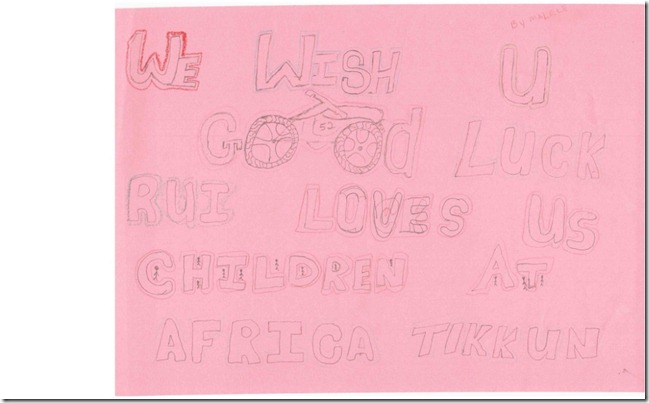 By
WE WISH U
GOOD LUCK
RUI LOVES US
CHILDREN AT
AFRICA TIKKUN